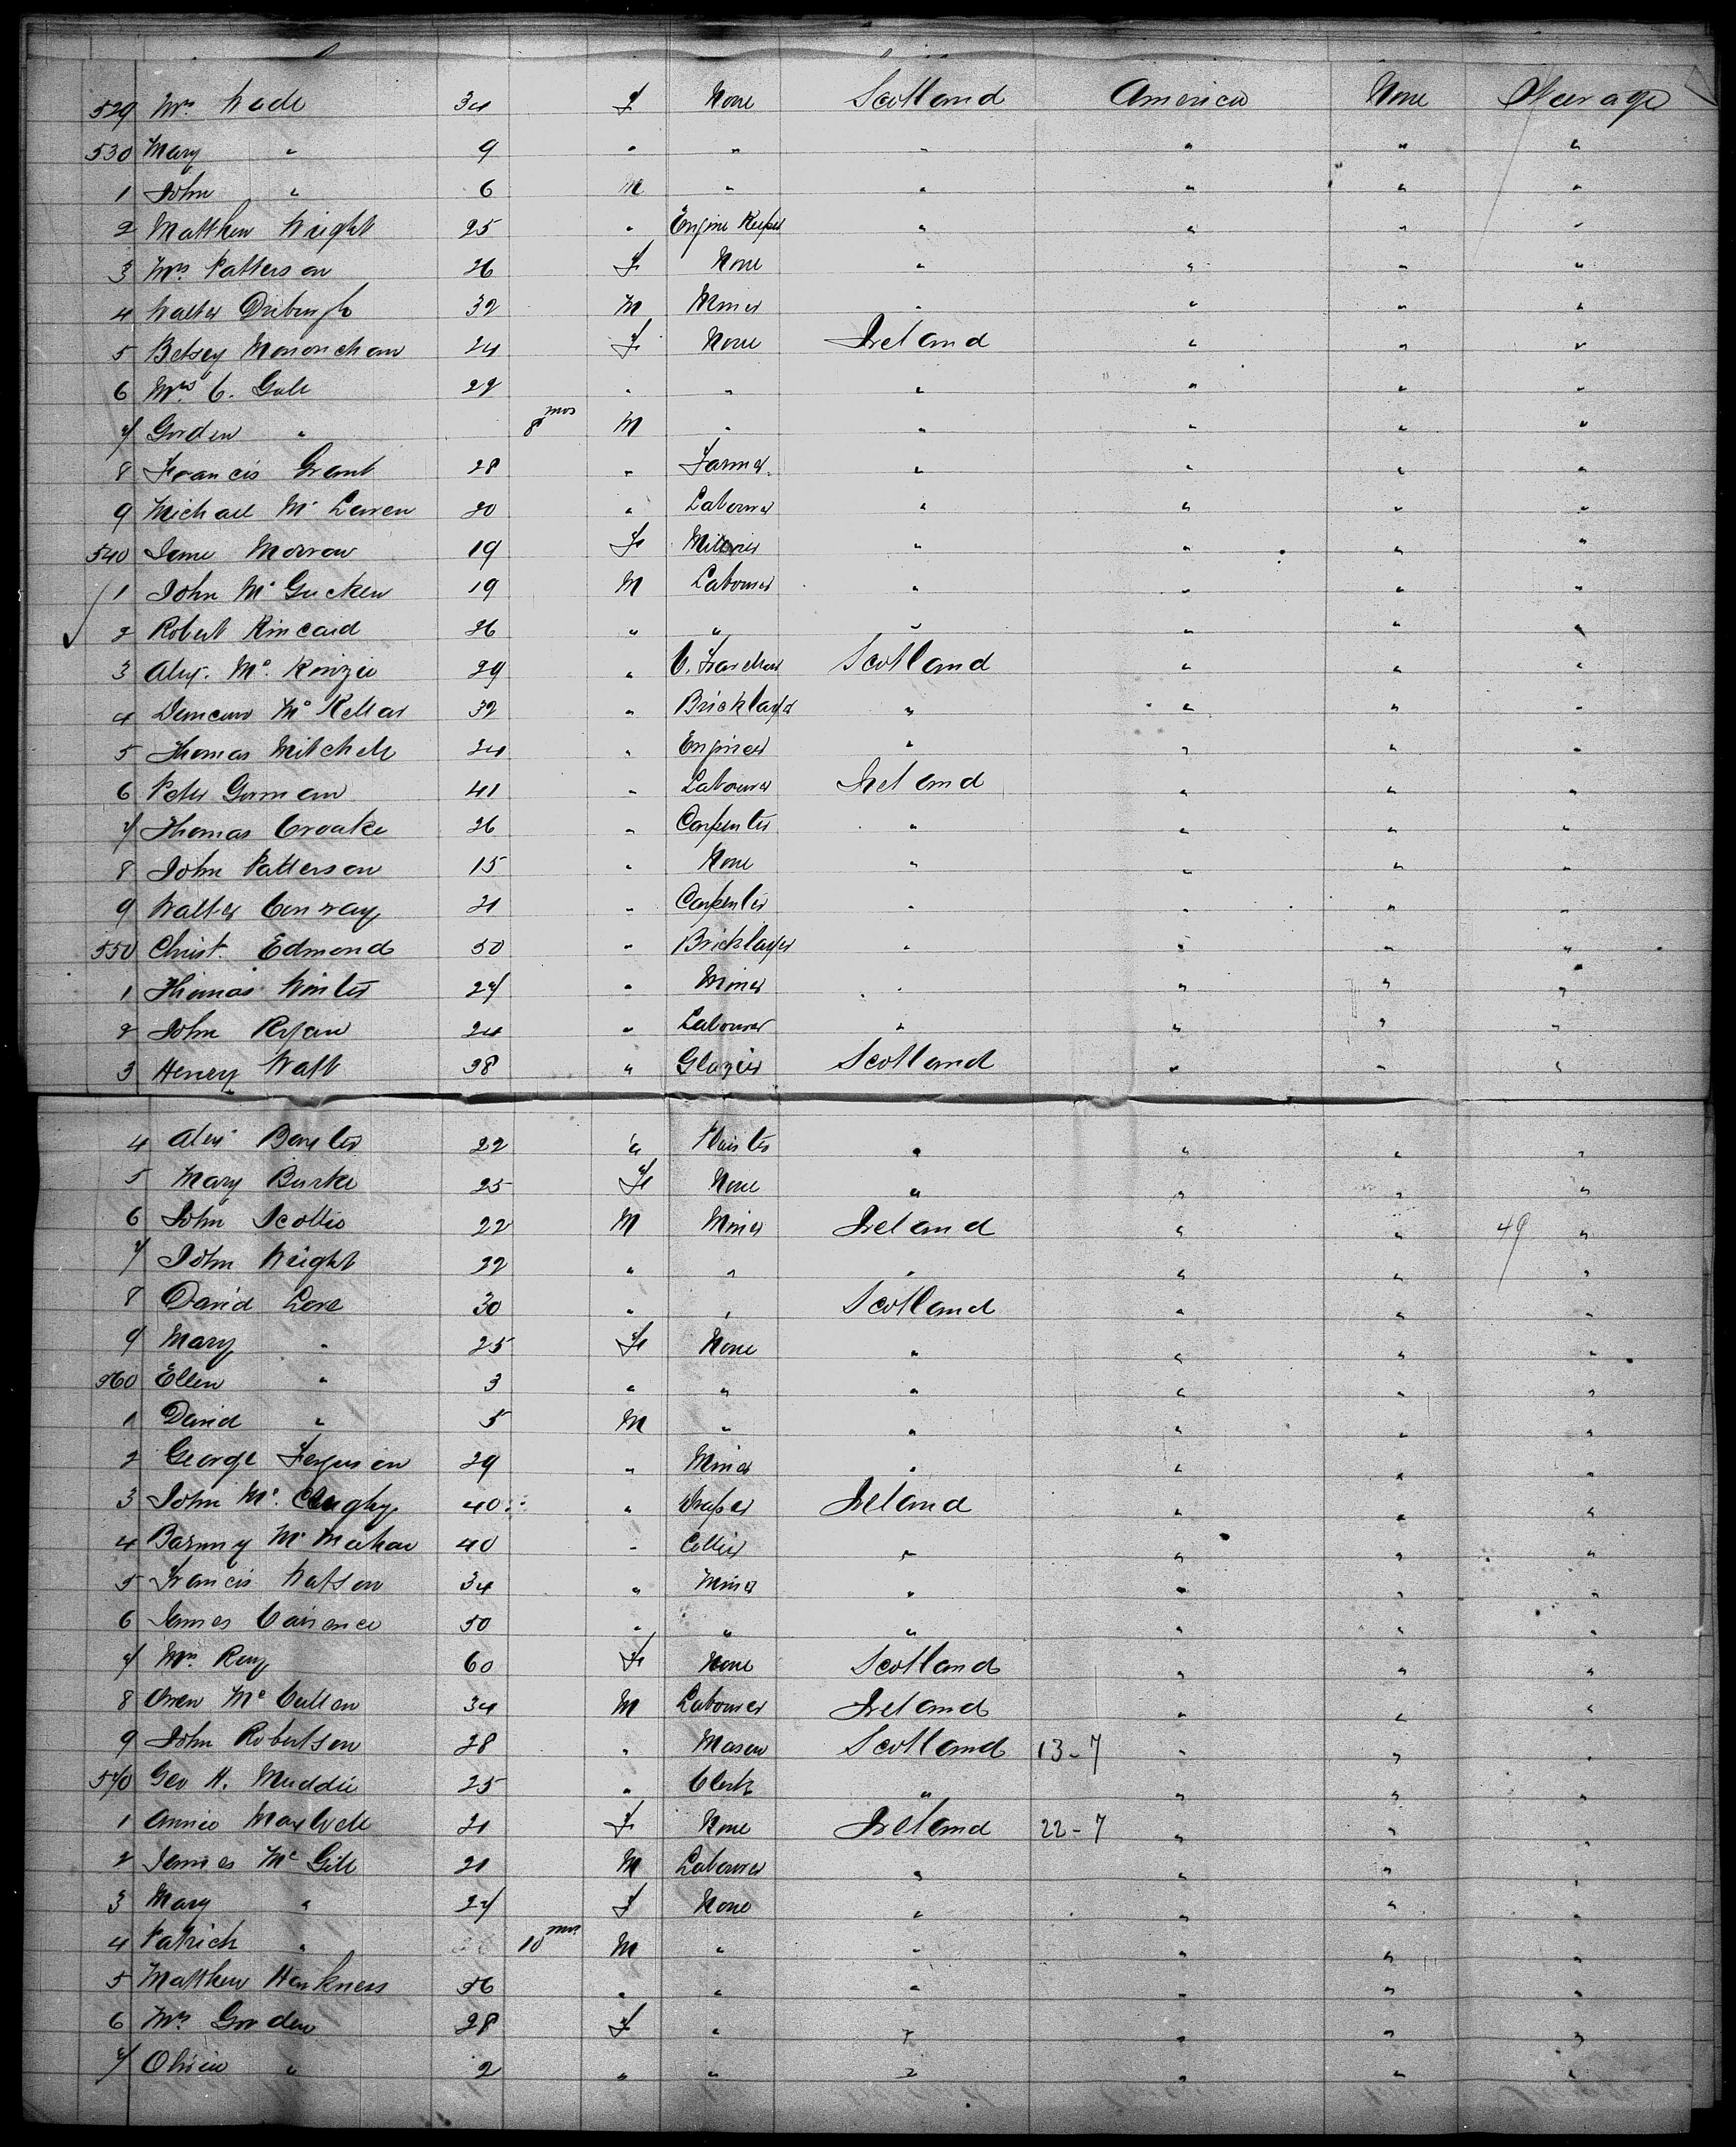 529 Mrs. Wade 34 F None Scotland America None Steerage
530 Mary " 9 " " " " " "
1 John " 6 M " " " " "
2 Matthew Wright 25 " Engine Keeper " " " "
3 Mrs. Patterson 26 F None " " " "
4 Walter 32 M Miner " " " "
5 Betsey 24 F None Ireland " " "
6 Mrs. C. Gale 22 " " " " " "
7 Gorden " 8 mos M " " " " "
8 Francis Grant 28 " Farmer " " " "
9 Michael Mc Laren 20 " Labourer " " " "
540 Jane Morrow 19 F " " " "
1 John Mc Gucken 19 M Labourer " " " "
2 Robert Kincaid 26 " " " " " "
3 Alex. Mc Kinzie 29 " C. Traveller Scotland " " "
4 Duncan Mc Kellar 32 " Bricklayer " " " "
5 Thomas Mitchell 24 " Engineer " " " "
6 Peter Gorman 41 " Labourer Ireland " " "
7 Thomas Croake 26 " Carpenter " " " "
8 John Patterson 15 " None " " " "
9 Walter Conway 21 " Carpenter " " " "
550 Christ. Edmond 50 " Bricklayer " " " "
1 Thomas Winter 27 " Miner " " " "
2 John Ryan 24 " Labourer " " " "
3 Henry Watt 38 " Glazier Scotland " " "
4 Alex Baxter 22 " " " " "
5 Mary Burke 25 F None " " " "
6 John 22 M Miner Ireland " " 49 "
7 John Wright 22 " " " " " "
8 David Love 30 " " Scotland " " "
9 Mary " 25 F None " " " "
560 Ellen " 3 " " " " " "
1 David " 5 M " " " " "
2 George Ferguson 29 " Miner " " " "
3 John Mc. 40 " Draper Ireland " " "
4 Barney Mc Meehan 40 " Collier " " " "
5 Francis Watson 34 " Miner " " " "
6 James 50 " " " " " "
7 Mrs. 60 F None Scotland " " "
8 Owen Mc Cullen 34 M Labourer Ireland " " "
9 John Robertson 28 " Mason Scotland 13-7 " " "
570 Geo H. Muddie 25 " Clerk " " " "
1 Annie Maxwell 21 F None Ireland 22-7 " " "
2 James Mc Gill 21 M Labourer " " " "
3 Mary " 27 F None " " " "
4 Patrick " 10 mos M " " " " "
5 Matthew Harkness 56 " " " " " "
6 Mrs. Gorden 28 F " " " " "
7 " 2 " " " " " "